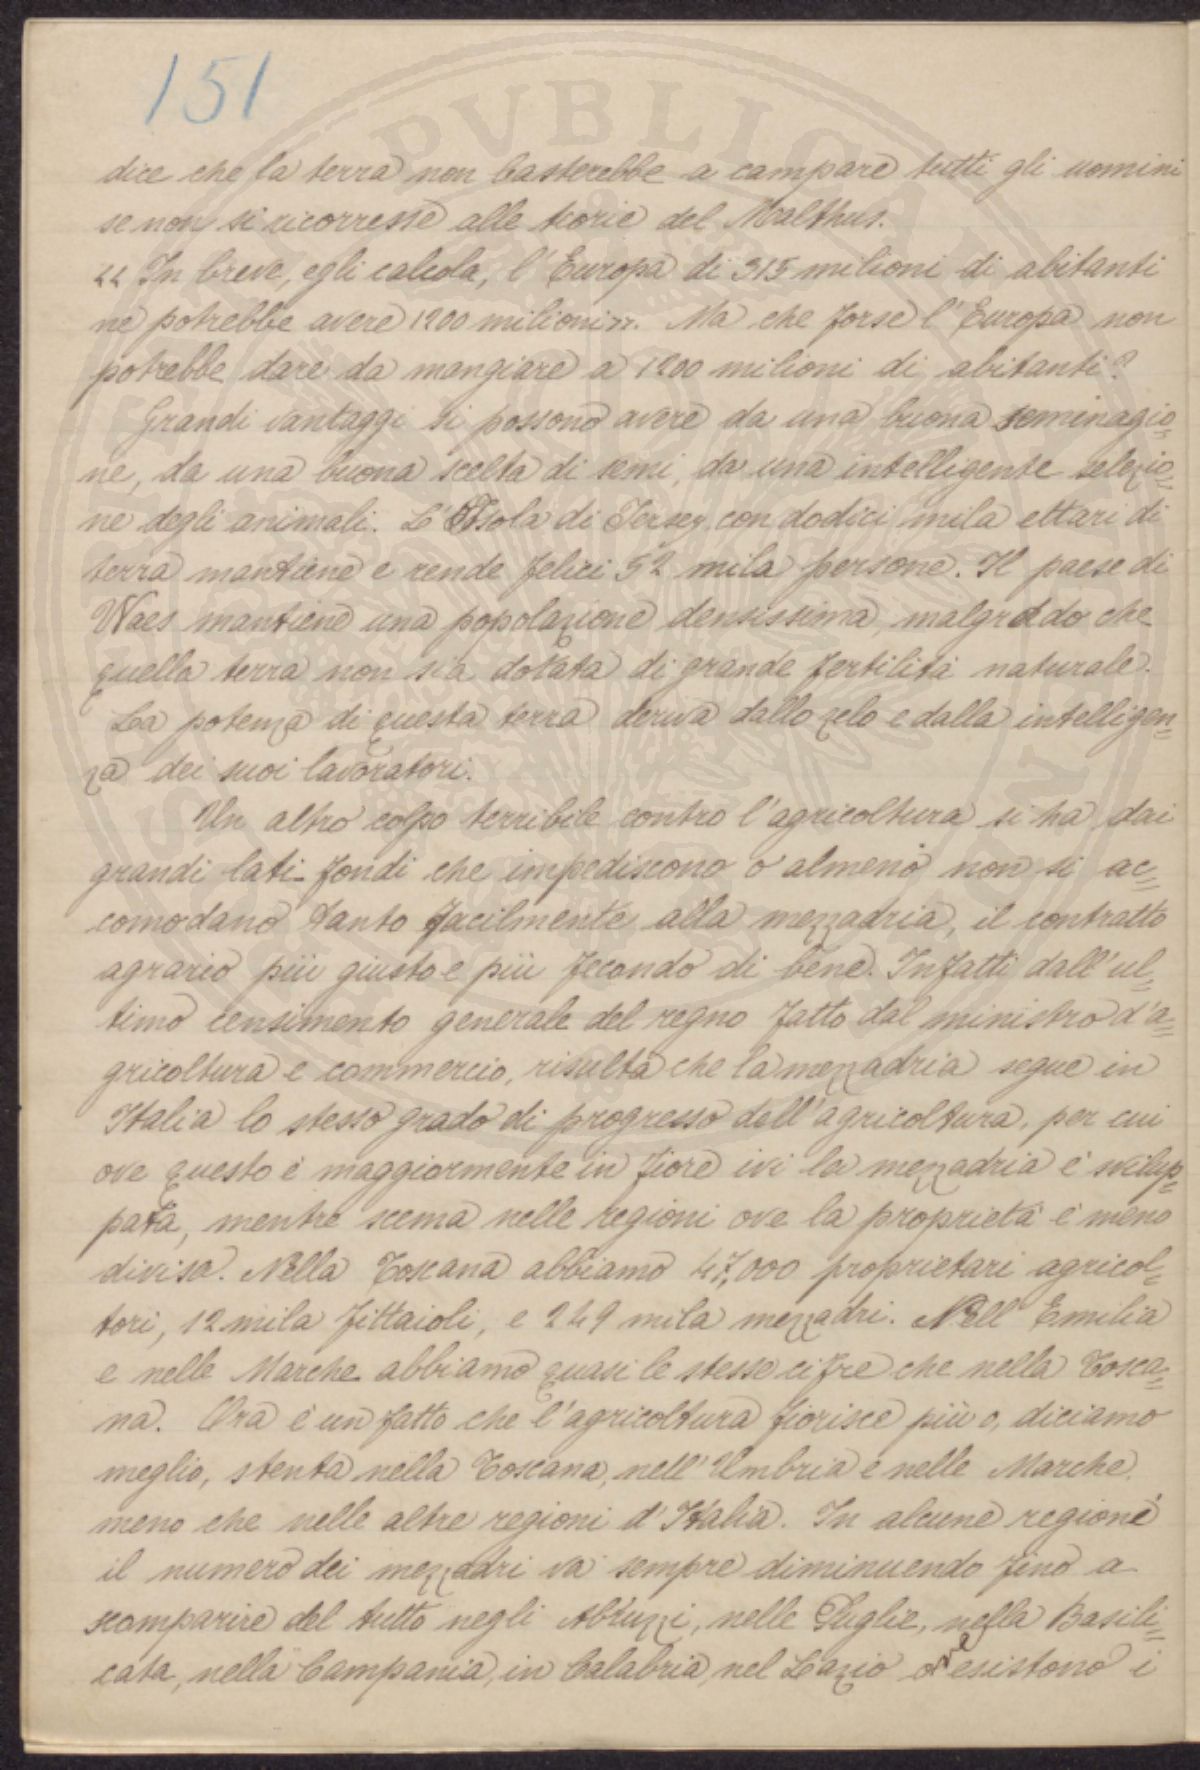 151
PVBLICA
dice che la terra non basterebbe a campare tutti gli uomini
se non si ricorresse alle teorie del Malthus.
"In breve, egli calcola, l'Europa di 315 milioni di abitanti
ne potrebbe avere 1200 milioni". Ma che forse l'Europa non
potrebbe dare da mangiare a 1200 milioni di abitanti?
Grandi vantaggi si possono avere da una buona seminagio=
ne, da una buona scelta di semi, da una intelligente selezio=
ne degli animali. L'Isola di Jersey con dodici mila ettari di
terra mantiene e rende felici 52 mila persone. Il paese di
Waes mantiene una popolazione densissima, malgrado che
quella terra non sia dotata di grande fertilità naturale.
La potenza di questa terra deriva dallo zelo e dalla intelligen=
za dei suoi lavoratori.
Un altro colpo terribile contro l'agricoltura si ha dai
grandi lati-fondi che impediscono o almeno non si ac=
comodano tanto facilmente alla mezzadria, il contratto
agrario più giusto e più fecondo di bene. Infatti dall'ul=
timo censimento generale del regno fatto dal ministro d'a=
gricoltura e commercio, risulta che la mezzadria segue in
Italia lo stesso grado di progresso dell'agricoltura, per cui
ove questo è maggiormente in fiore ivi la mezzadria è svilup=
pata, mentre scema nelle regioni ove la proprietà è meno
divisa. Nella Toscana abbiamo 47,000 proprietari agricol=
tori, 12 mila fittaioli, e 249 mila mezzadri. Nell'Emilia
e nelle Marche abbiamo quasi le stesse cifre che nella Tosca=
na. Ora è un fatto che l'agricoltura fiorisce più o, diciamo
meglio, stenta nella Toscana, nell'Umbria e nelle Marche,
meno che nelle altre regioni d'Italia. In alcune regione
il numero dei mezzadri va sempre diminuendo fino a
scomparire del tutto negli Abruzzi, nelle Puglie, nella Basili=
cata, nella Campania, in Calabria, nel Lazio ove esistono i